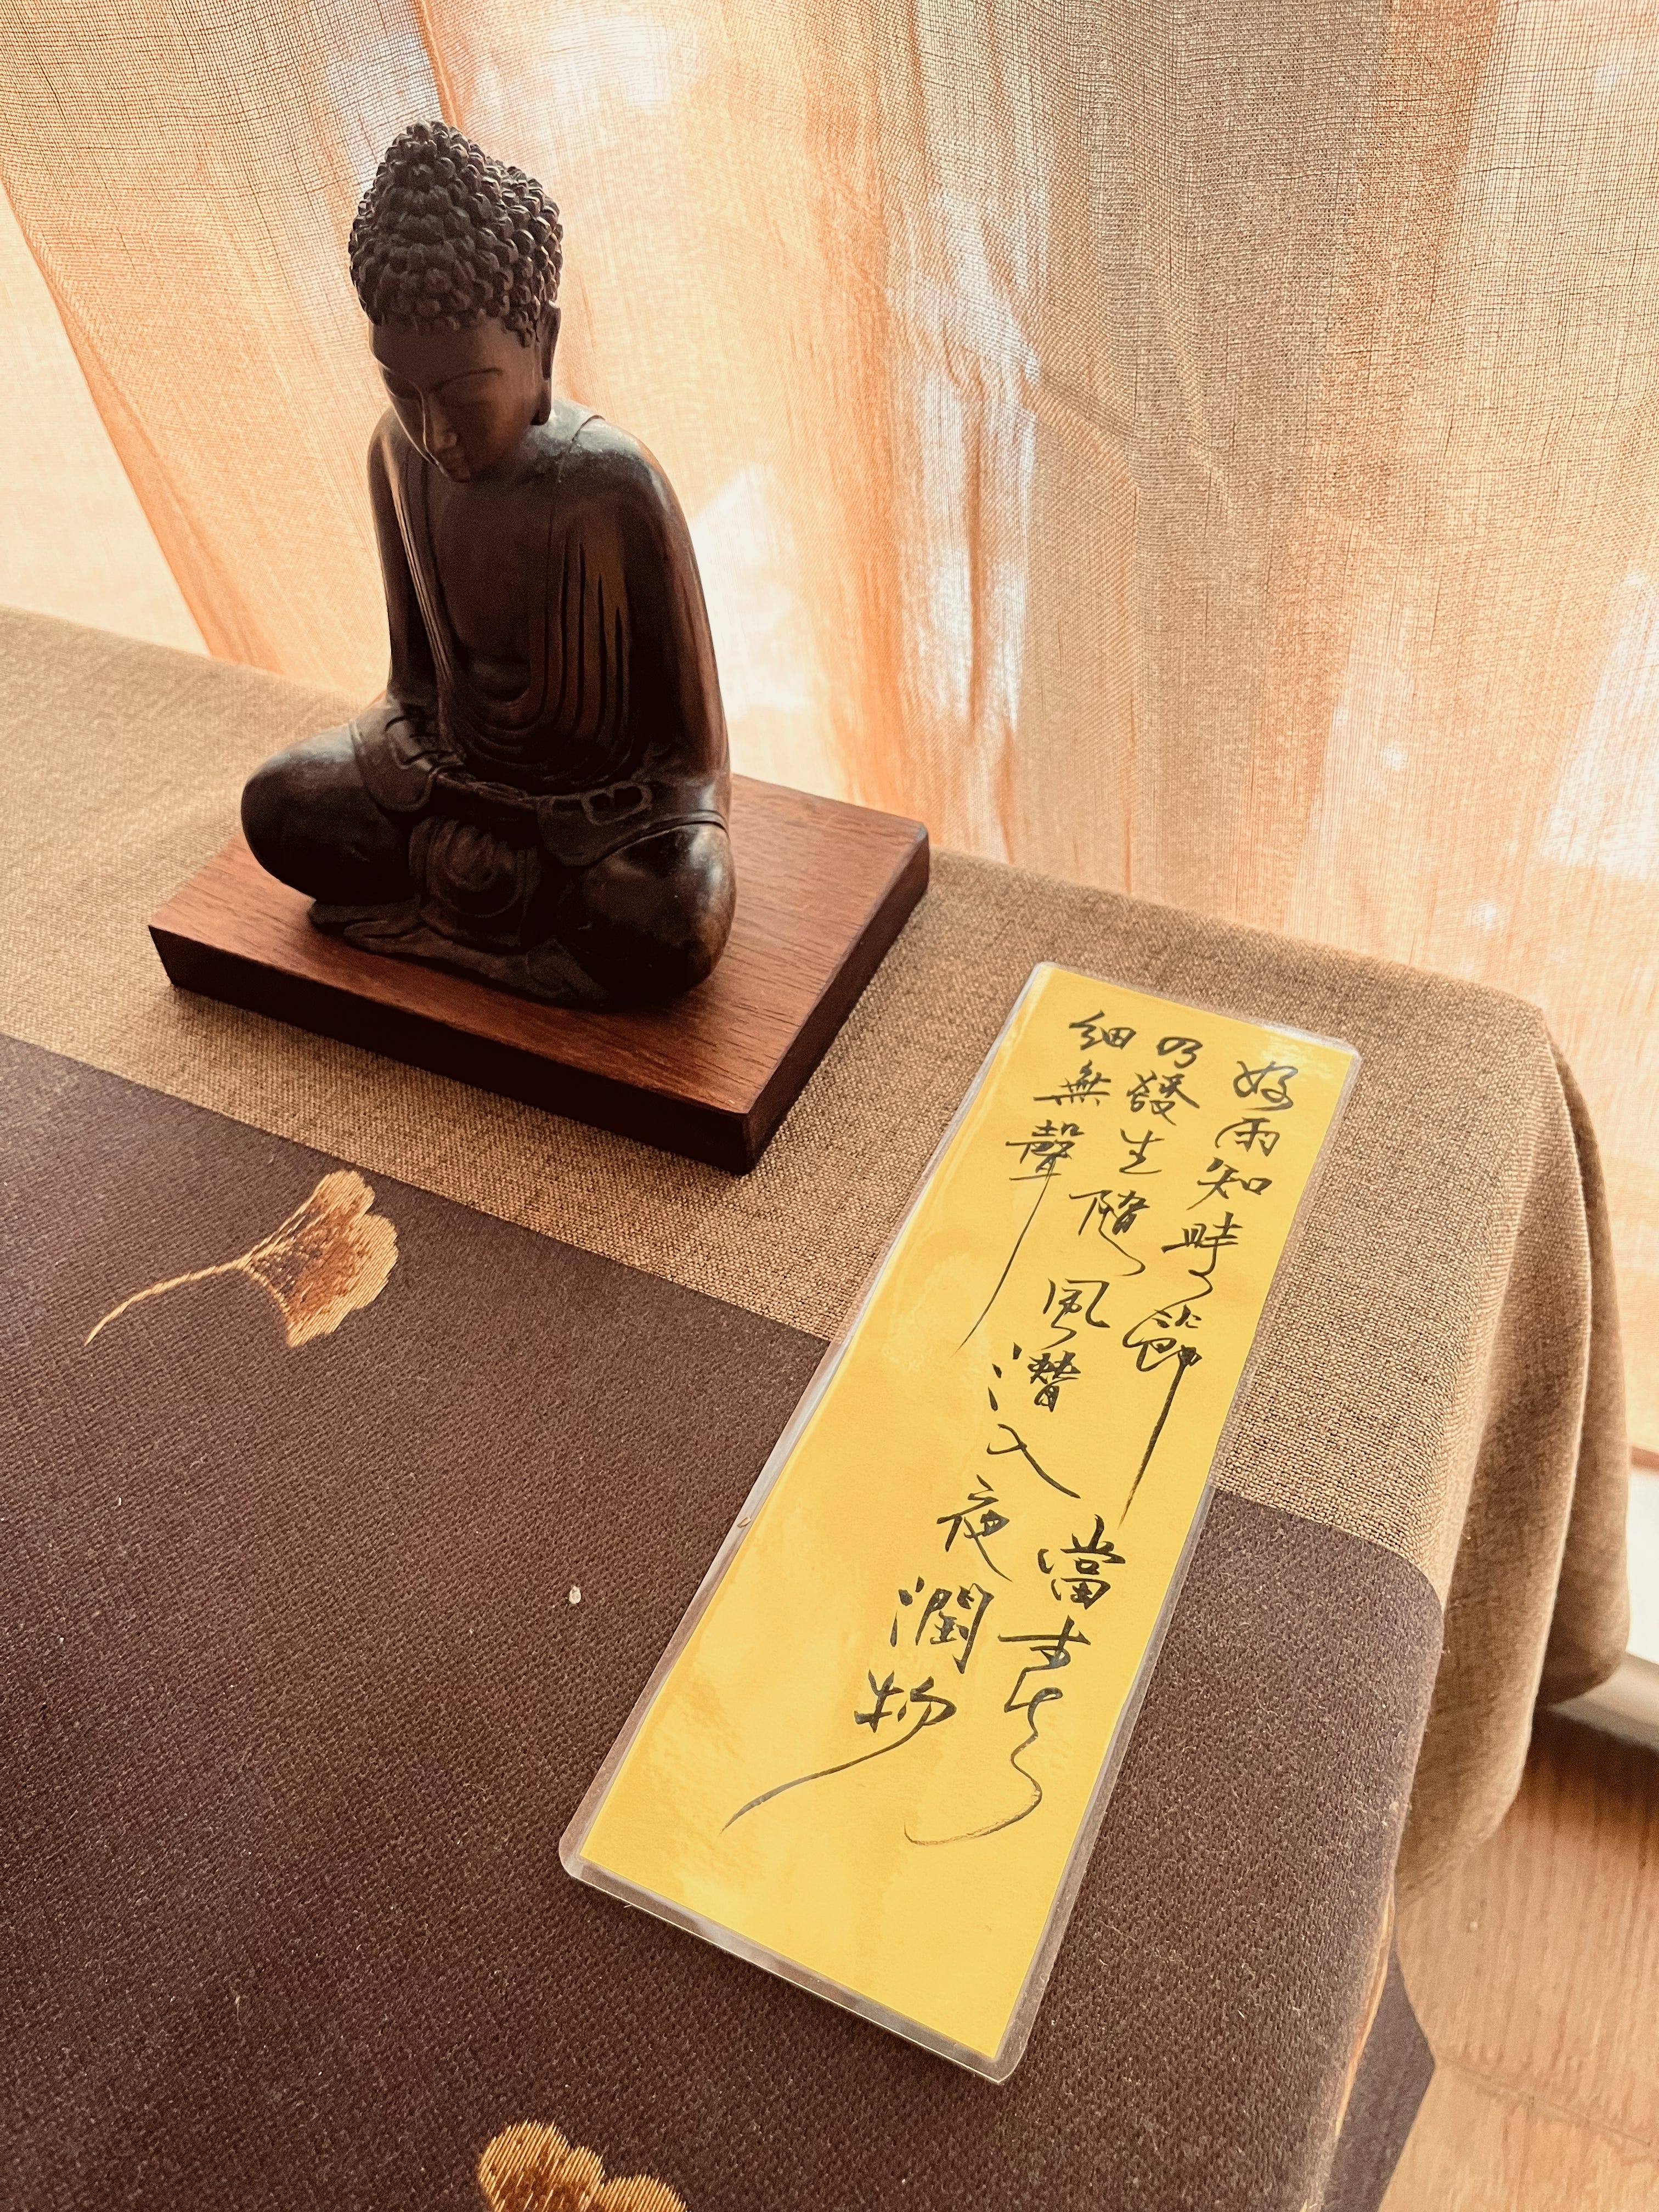 好雨知時節當春
乃發生隨風潛入夜潤物
細無聲